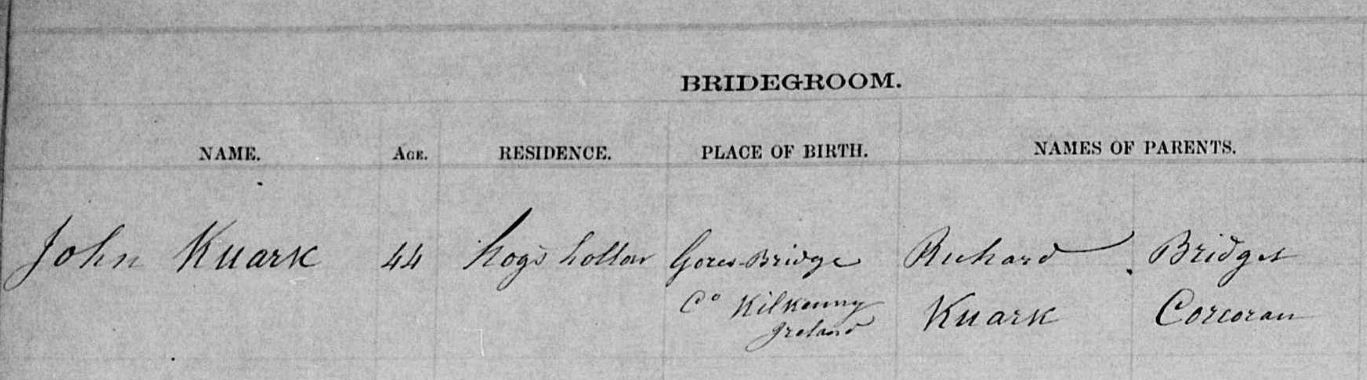 BRIDEGROOM.
NAME. AGE. RESIDENCE. PLACE OF BIRTH. NAMES OF PARENTS.
John Kuark 44 hogs hollow Gores Bridge Richard Bridget
Co Kilkenny Kuark Corcoran
Ireland